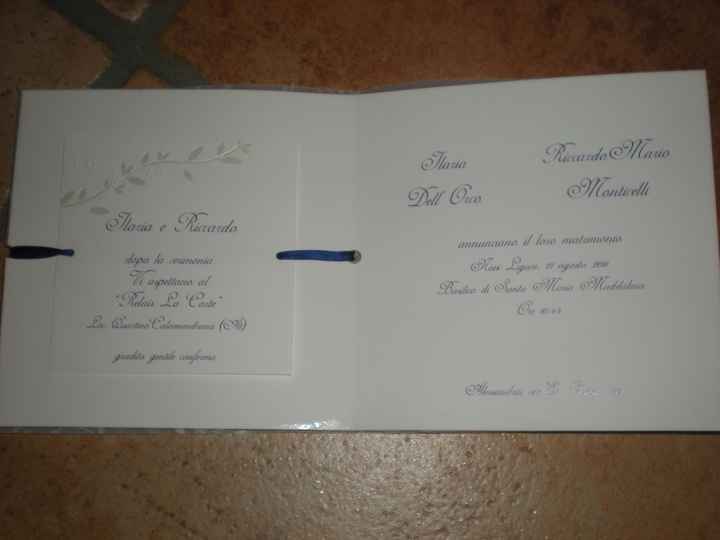 Ilaria e Riccardo
dopo la cerimonia
Vi aspettano al
"Relais La Corte"
Loc. Quartino Calamandrana (At)
gradita gentile conferma
Ilaria
Dell' Orco
Riccardo Mario
Monticelli
annunciano il loro matrimonio
Novi Ligure, 27 agosto
Basilica di Santa Maria Maddalena
Ore
Alessandria